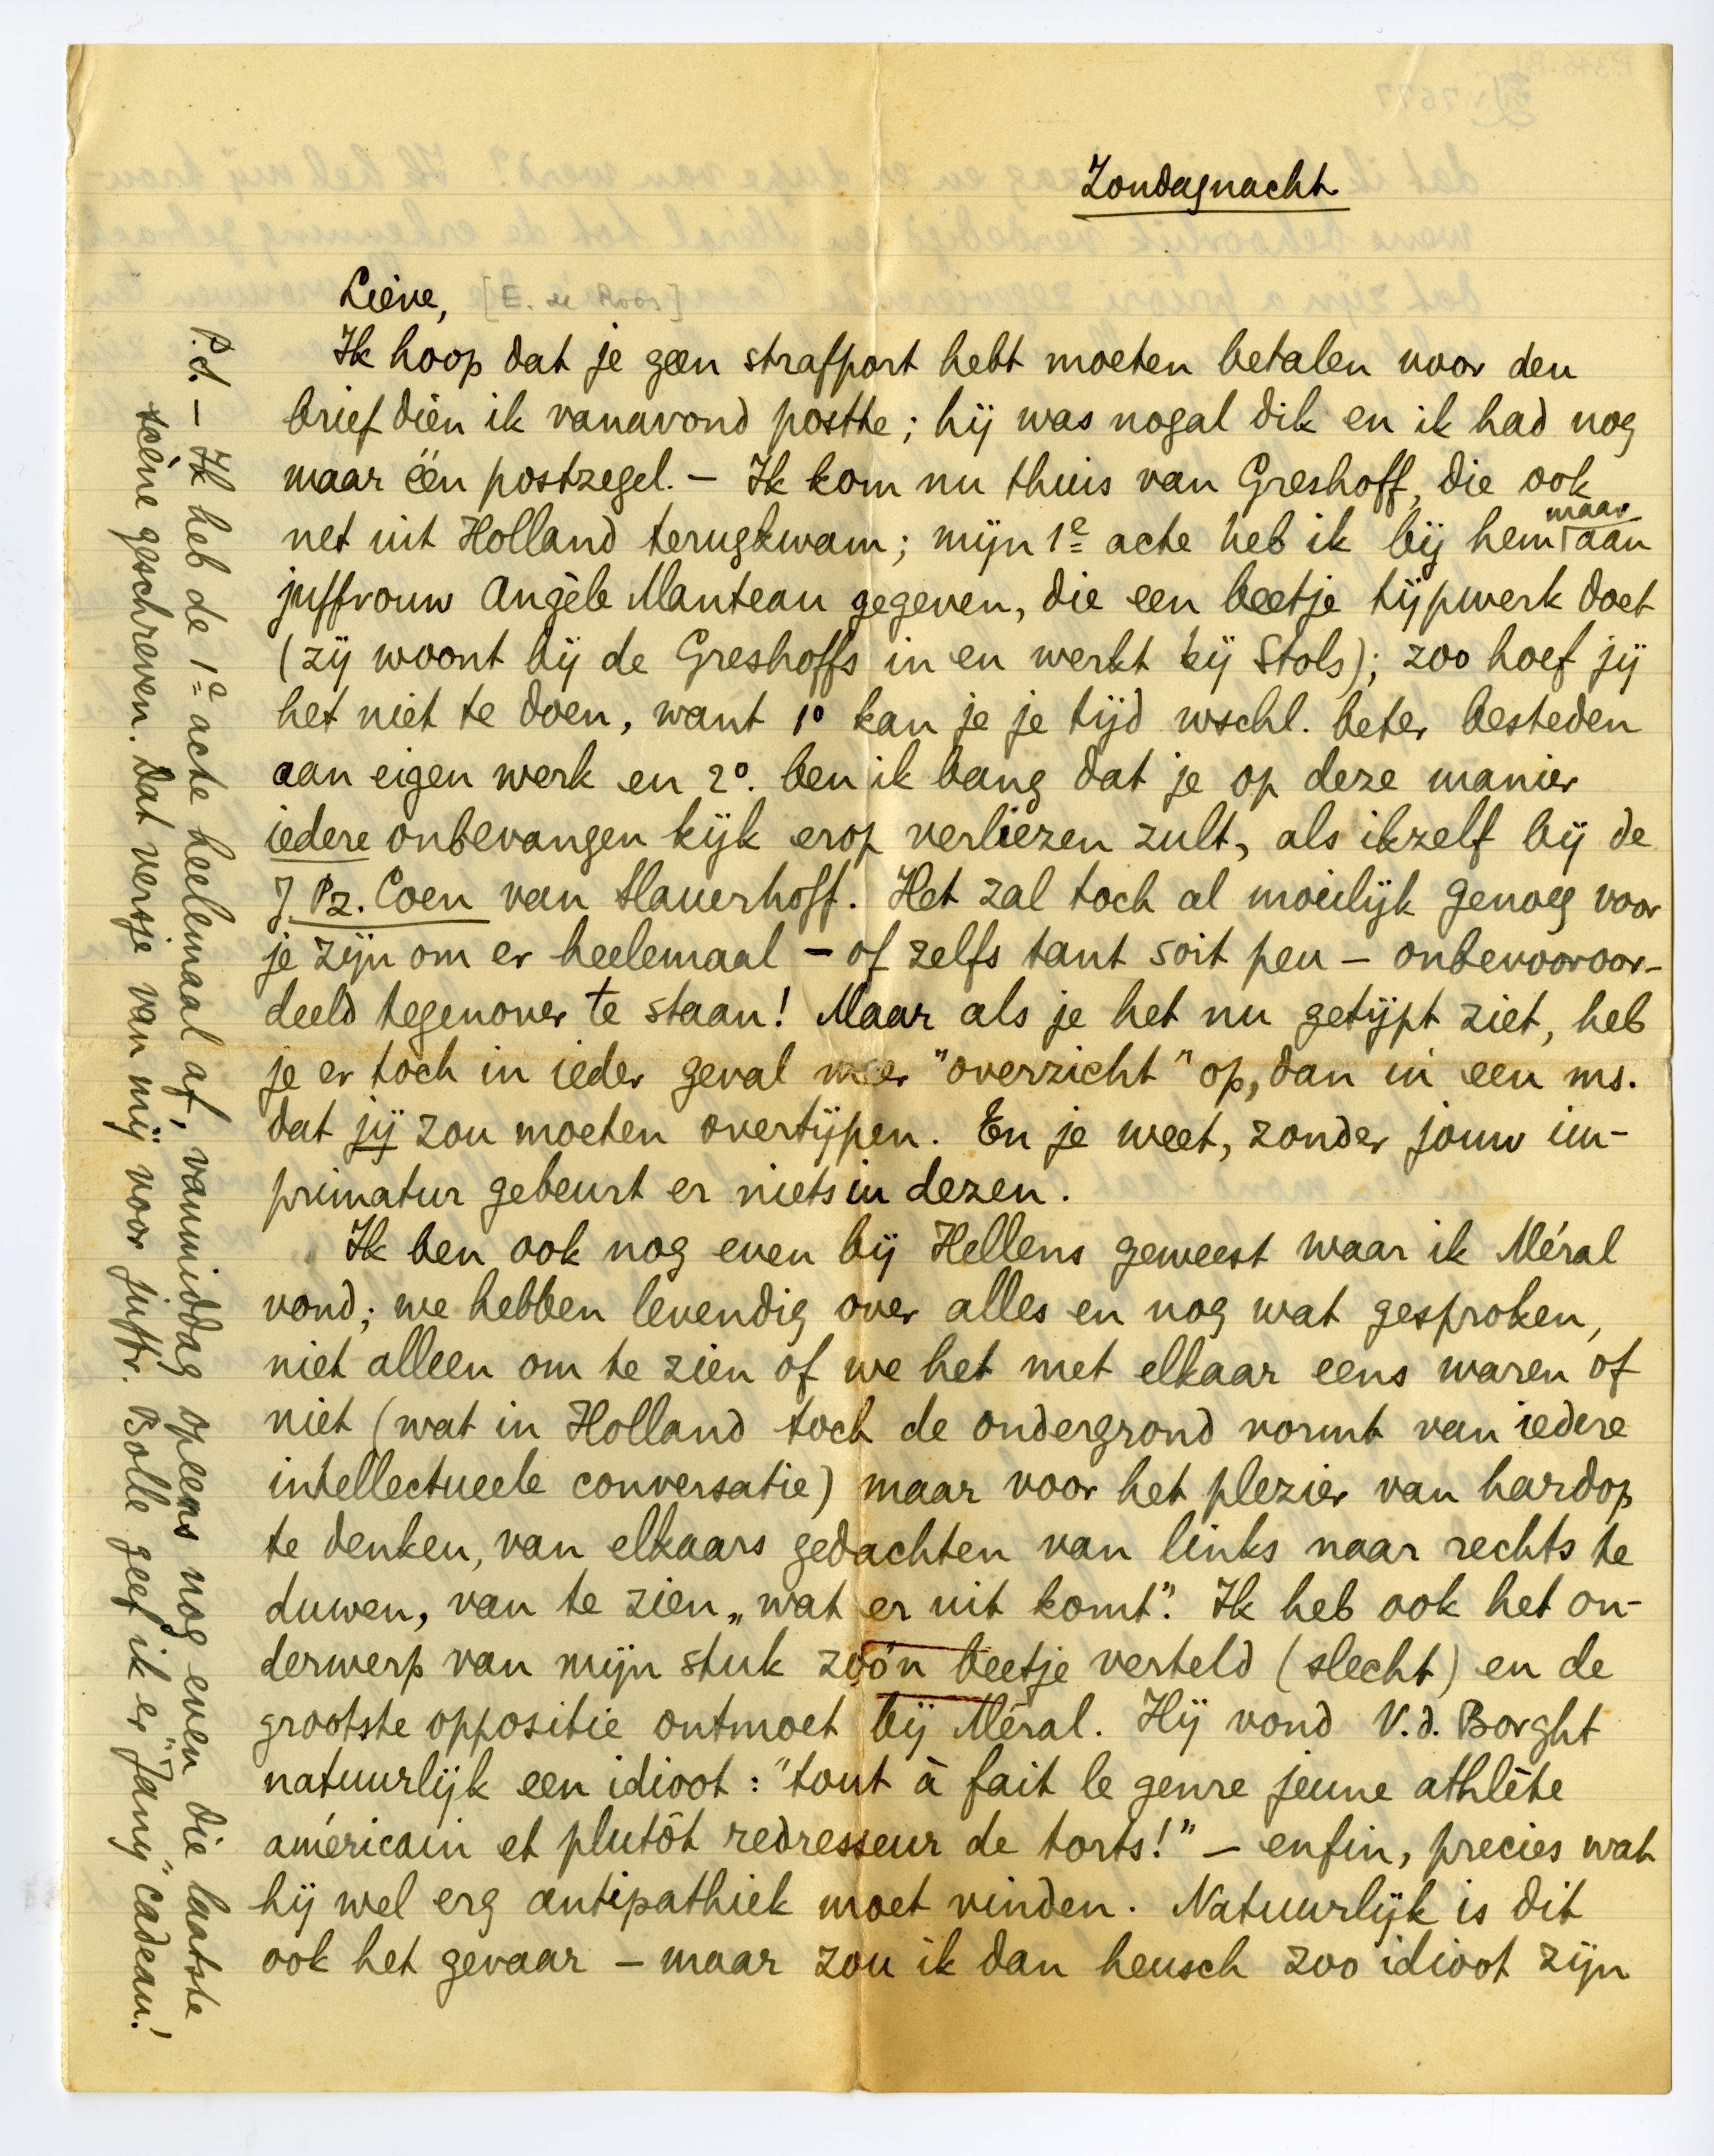 Zondagnacht
Lieve, [E. de Roos]
Ik hoop dat je geen strafport hebt moeten betalen voor den
brief dièn ik vanavond postte; hij was nogal dik en ik had nog
maar één postzegel. – Ik kom nu thuis van Greshoff, die ook
net uit Holland terugkwam; mijn 1e acte heb ik bij hem maar aan
juffrouw Angèle Manteau gegeven, die een beetje tijpwerk doet
(zij woont bij de Greshoffs in en werkt bij Stols); zoo hoef jij
het niet te doen, want 1° kan je je tijd wschl. beter besteden
aan eigen werk en 2°. ben ik bang dat je op deze manier
iedere onbevangen kijk erop verliezen zult, als ikzelf bij de
J. Pz. Coen van Slauerhoff. Het zal toch al moeilijk genoeg voor
je zijn om er heelemaal – of zelfs tant soit peu – onbevooroor-
deeld tegenover te staan! Maar als je het nu getijpt ziet, heb
je er toch in ieder geval meer "overzicht" op, dan in een ms.
dat jij zou moeten overtijpen. En je weet, zonder jouw im-
primatur gebeurt er niets in dezen.
Ik ben ook nog even bij Hellens geweest waar ik Méral
vond; we hebben levendig over alles en nog wat gesproken,
niet alleen om te zien of we het met elkaar eens waren of
niet (wat in Holland toch de ondergrond vormt van iedere
intellectueele conversatie) maar voor het plezier van hardop
te denken, van elkaars gedachten van links naar rechts te
duwen, van te zien „wat er uit komt". Ik heb ook het on-
derwerp van mijn stuk zóó'n beetje verteld (slecht) en de
grootste oppositie ontmoet bij Méral. Hij vond V.d. Borght
natuurlijk een idioot: "tout à fait le genre jeune athlète
américain et plutôt redresseur de torts!" – enfin, precies wat
hij wel erg antipathiek moet vinden. Natuurlijk is dit
ook het gevaar – maar zou ik dan heusch zoo idioot zijn
P.S. – Ik heb de 1e acte heelemaal af, vanmiddag opeens nog even die laatste
scène geschreven. Dat versje van mij voor juffr. Bolle geef ik er "Jany" cadeau!